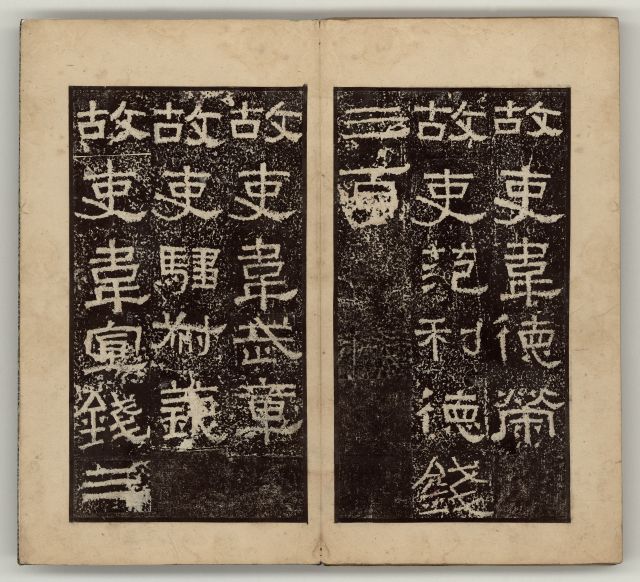 故吏韋德榮
故吏范利德錢
三百
故吏韋武章
故吏騶叔義
故吏韋宣錢三